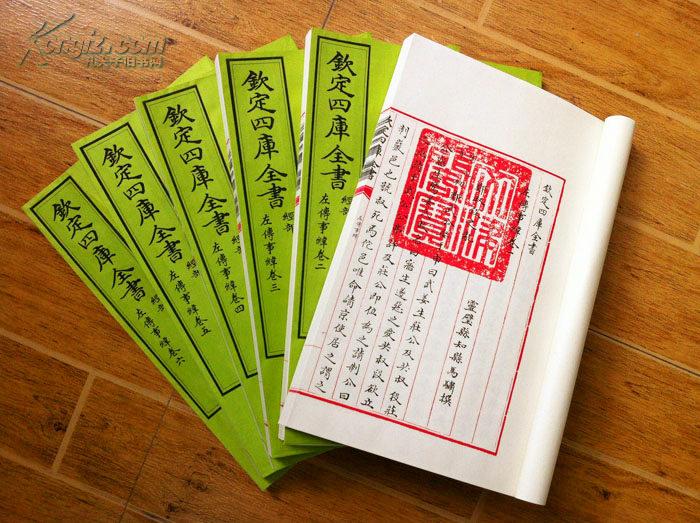 Kongfz.com
孔夫子旧书网
欽定四庫全書
經部
左傳事緯卷六
欽定四庫全書
經部
左傳事緯卷五
欽定四庫全書
經部
左傳事緯卷四
欽定四庫全書
經部
左傳事緯卷三
欽定四庫全書
經部
左傳事緯卷二
欽定四庫全書
左傳事緯卷一
靈璧縣知縣馬驌撰
曰武姜生莊公及共叔段莊
寤生遂惡之愛共叔段欲立
及莊公即位為之請制公曰
制巖邑也虢叔死焉佗邑唯命請京使居之謂之